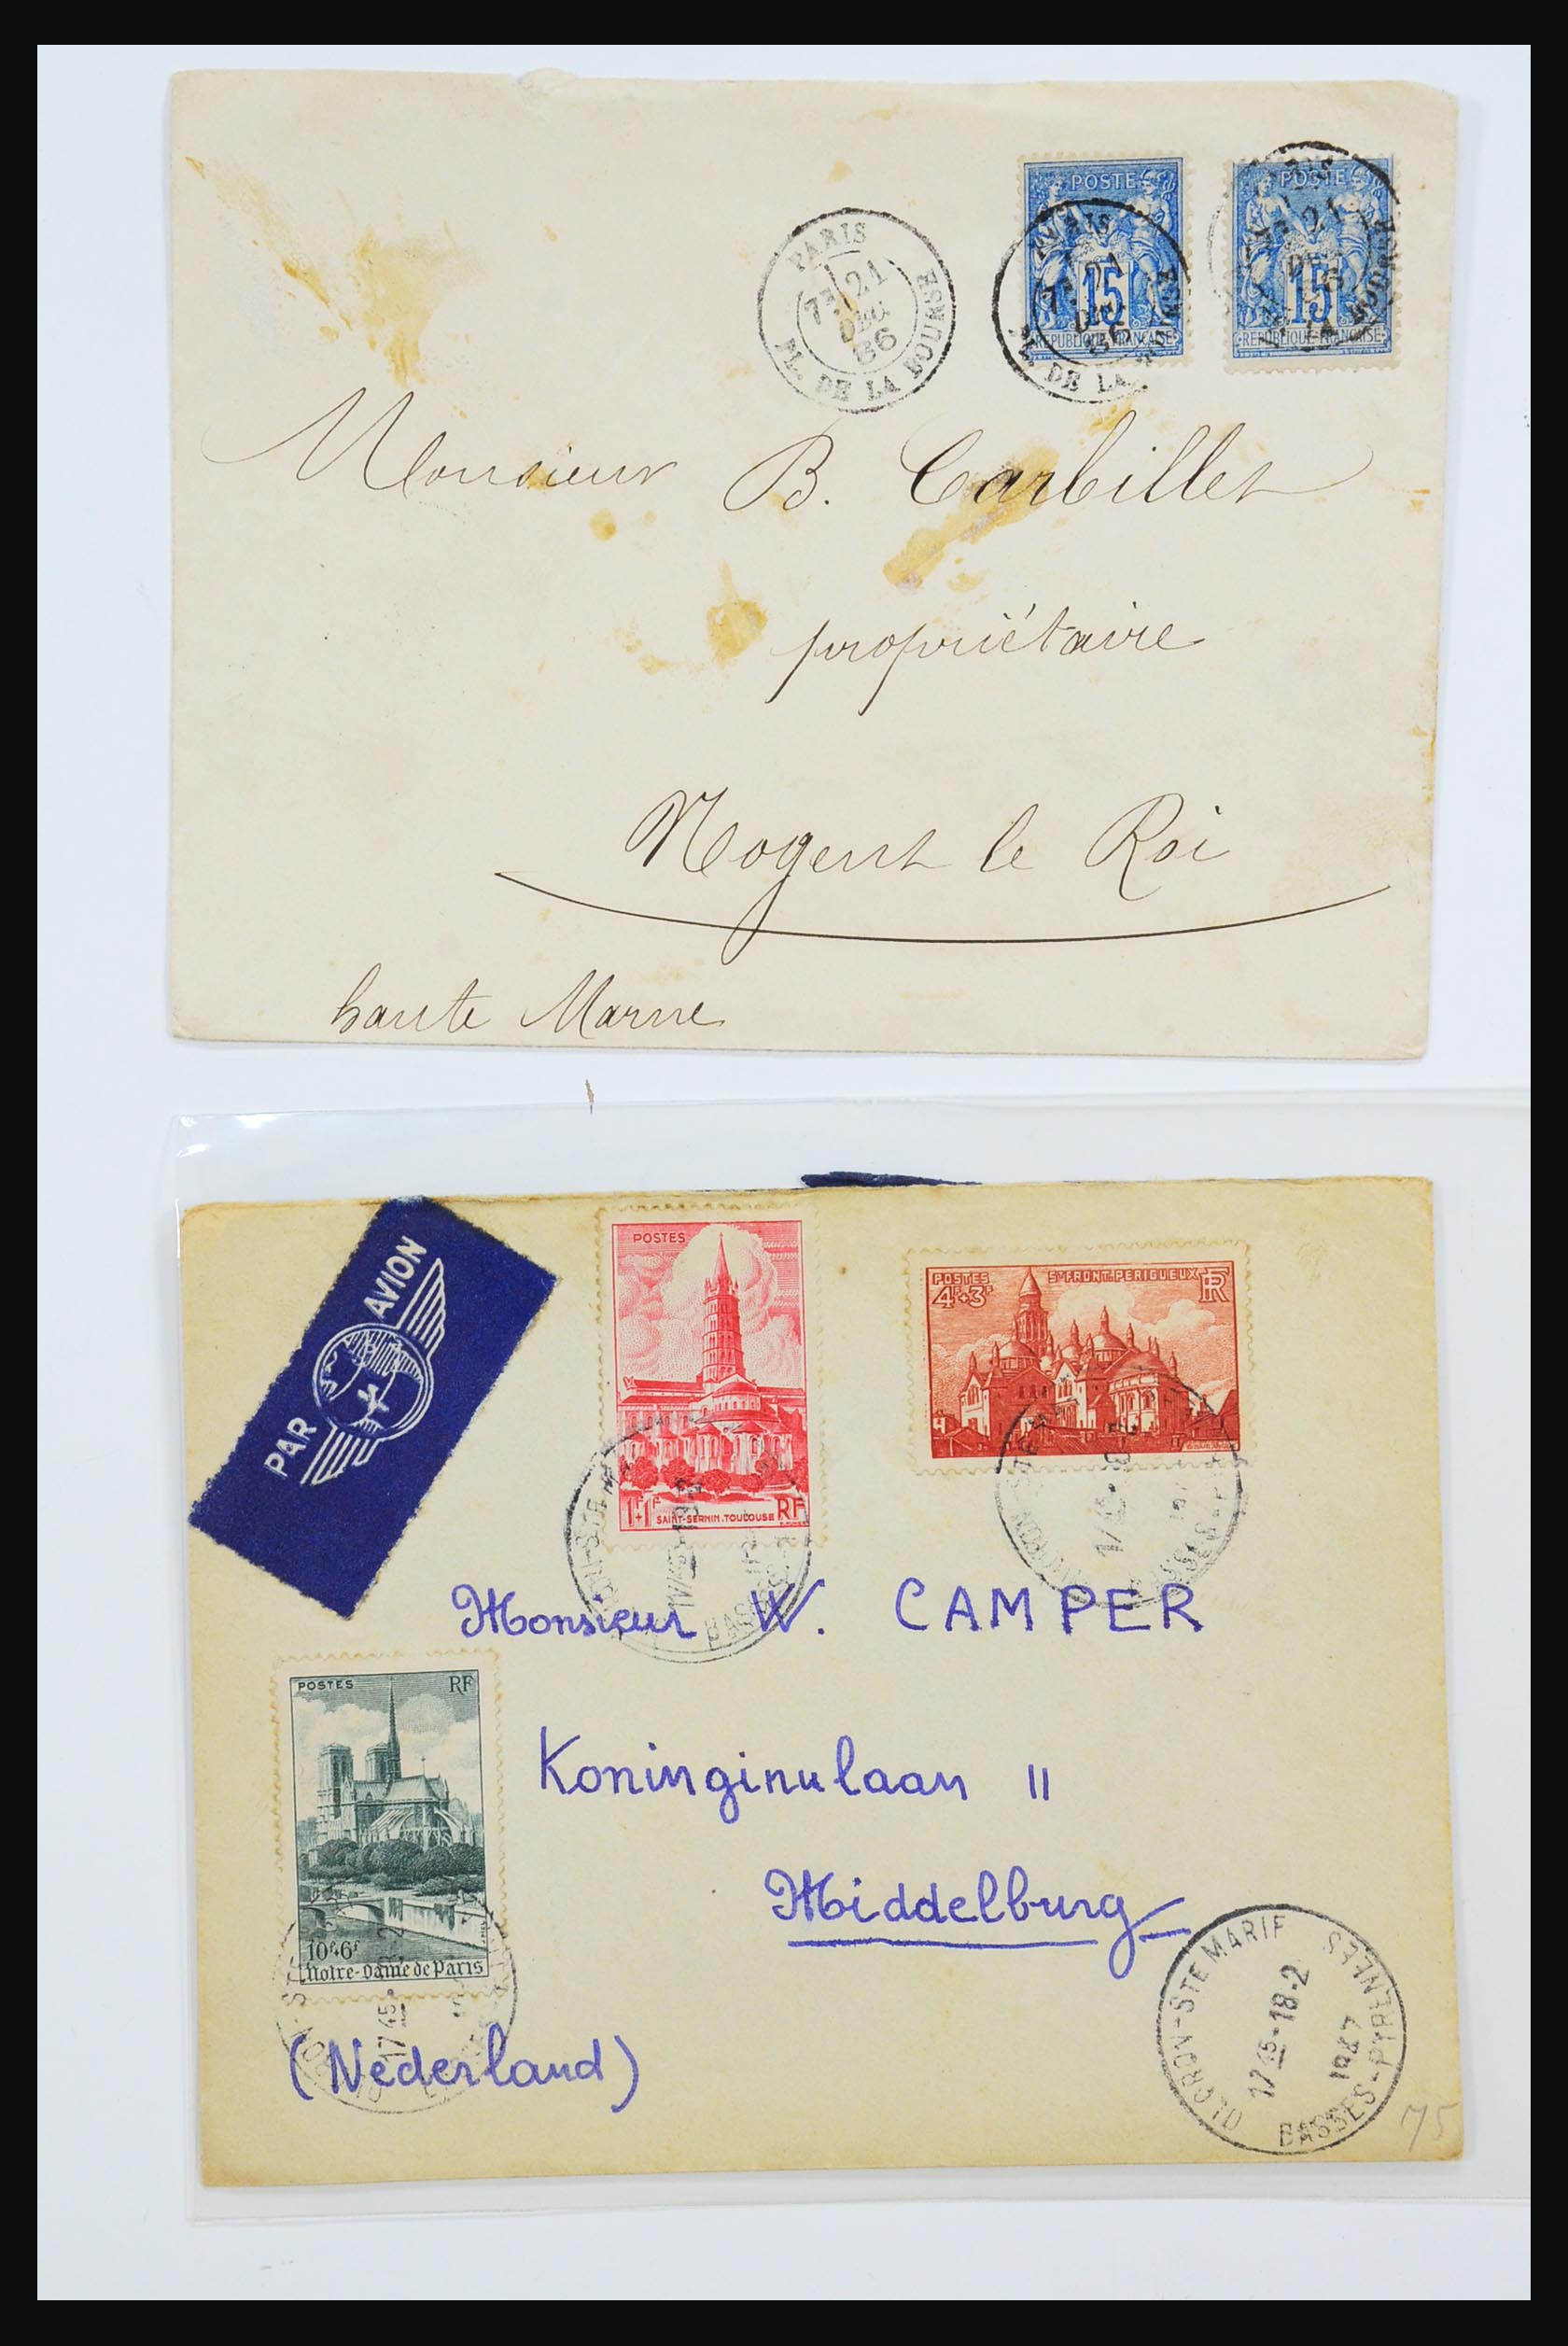 POSTE
15
REPUBLIQUE FRANÇAISE
POSTE
15
REPUBLIQUE FRANÇAISE
PARIS
7E 21
DEC
86
PL. DE LA BOURSE
PARIS
PL. DE LA BOURSE
21
Monsieur B. Carbillet
propriétaire
Nogent le Roi
haute Marne
PAR AVION
POSTES
1F+1F SAINT-SERNIN.TOULOUSE RF
POSTES ST FRONT-PERIGUEUX RF
4F+3F
Monsieur W. CAMPER
POSTES RF
10F+6F
Notre-Dame de Paris
Koninginnelaan 11
Middelburg
(Nederland)
OLORON-STE MARIE
17 45 - 18-2
1947
BASSES-PYRENEES
75